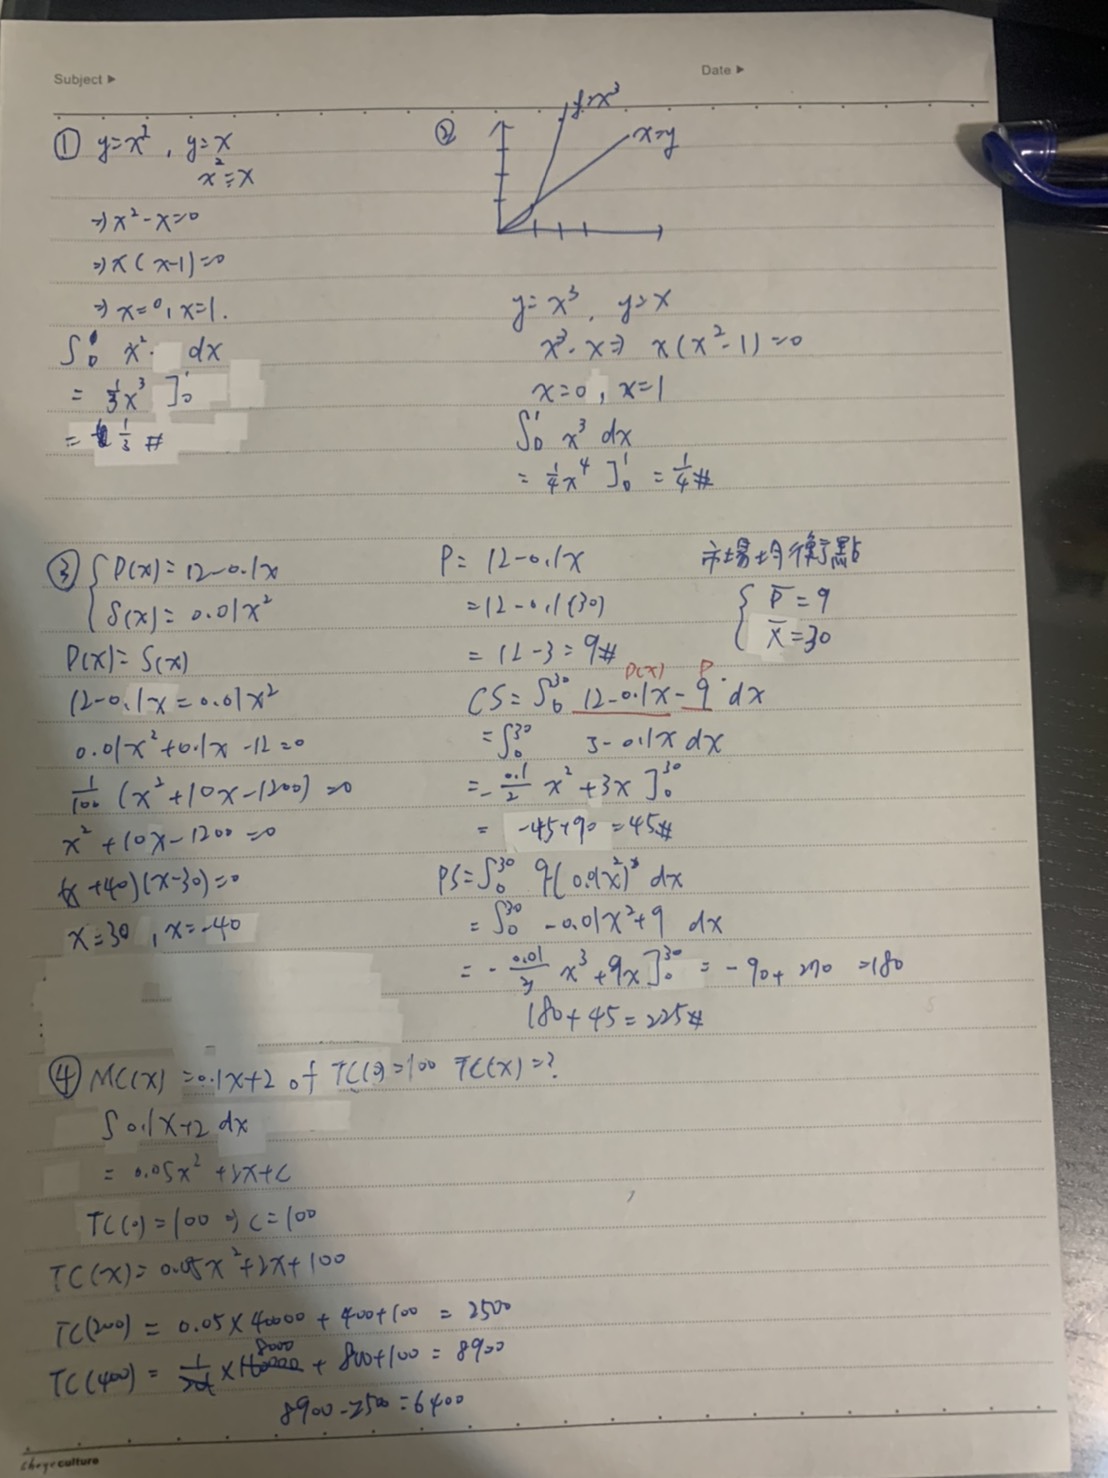 Subject ▸
Date ▸
① y=x², y=x
x²=x
⇒ x²-x=0
⇒ x(x-1)=0
⇒ x=0, x=1.
∫₀¹ x² dx
= 1/3 x³ ]₀¹
= 1/3 #
②
y=x³
x=y
y=x³, y=x
x³-x ⇒ x(x²-1)=0
x=0, x=1
∫₀¹ x³ dx
= 1/4 x⁴ ]₀¹ = 1/4 #
③ { D(x)=12-0.1x
S(x)=0.01x²
D(x)=S(x)
12-0.1x=0.01x²
0.01x²+0.1x-12=0
1/100 (x²+10x-1200)=0
x²+10x-1200=0
(x+40)(x-30)=0
x=30, x=-40
P=12-0.1x
=12-0.1(30)
=12-3=9#
市場均衡點
{ P̄=9
x̄=30
D(x) P
CS=∫₀³⁰ 12-0.1x-9 dx
=∫₀³⁰ 3-0.1x dx
=-0.1/2 x²+3x ]₀³⁰
= -45+90=45#
PS=∫₀³⁰ 9-(0.01x²) dx
=∫₀³⁰ -0.01x²+9 dx
= -0.01/3 x³+9x ]₀³⁰ = -90+270 =180
180+45=225#
④ MC(x)=0.1x+2 of TC(0)=100 TC(x)=?
∫ 0.1x+2 dx
= 0.05x²+2x+C
TC(0)=100 ⇒ C=100
TC(x)=0.05x²+2x+100
TC(200) = 0.05×40000+400+100 = 2500
TC(400) = 8000 + 800+100 = 8900
8900-2500=6400
culture